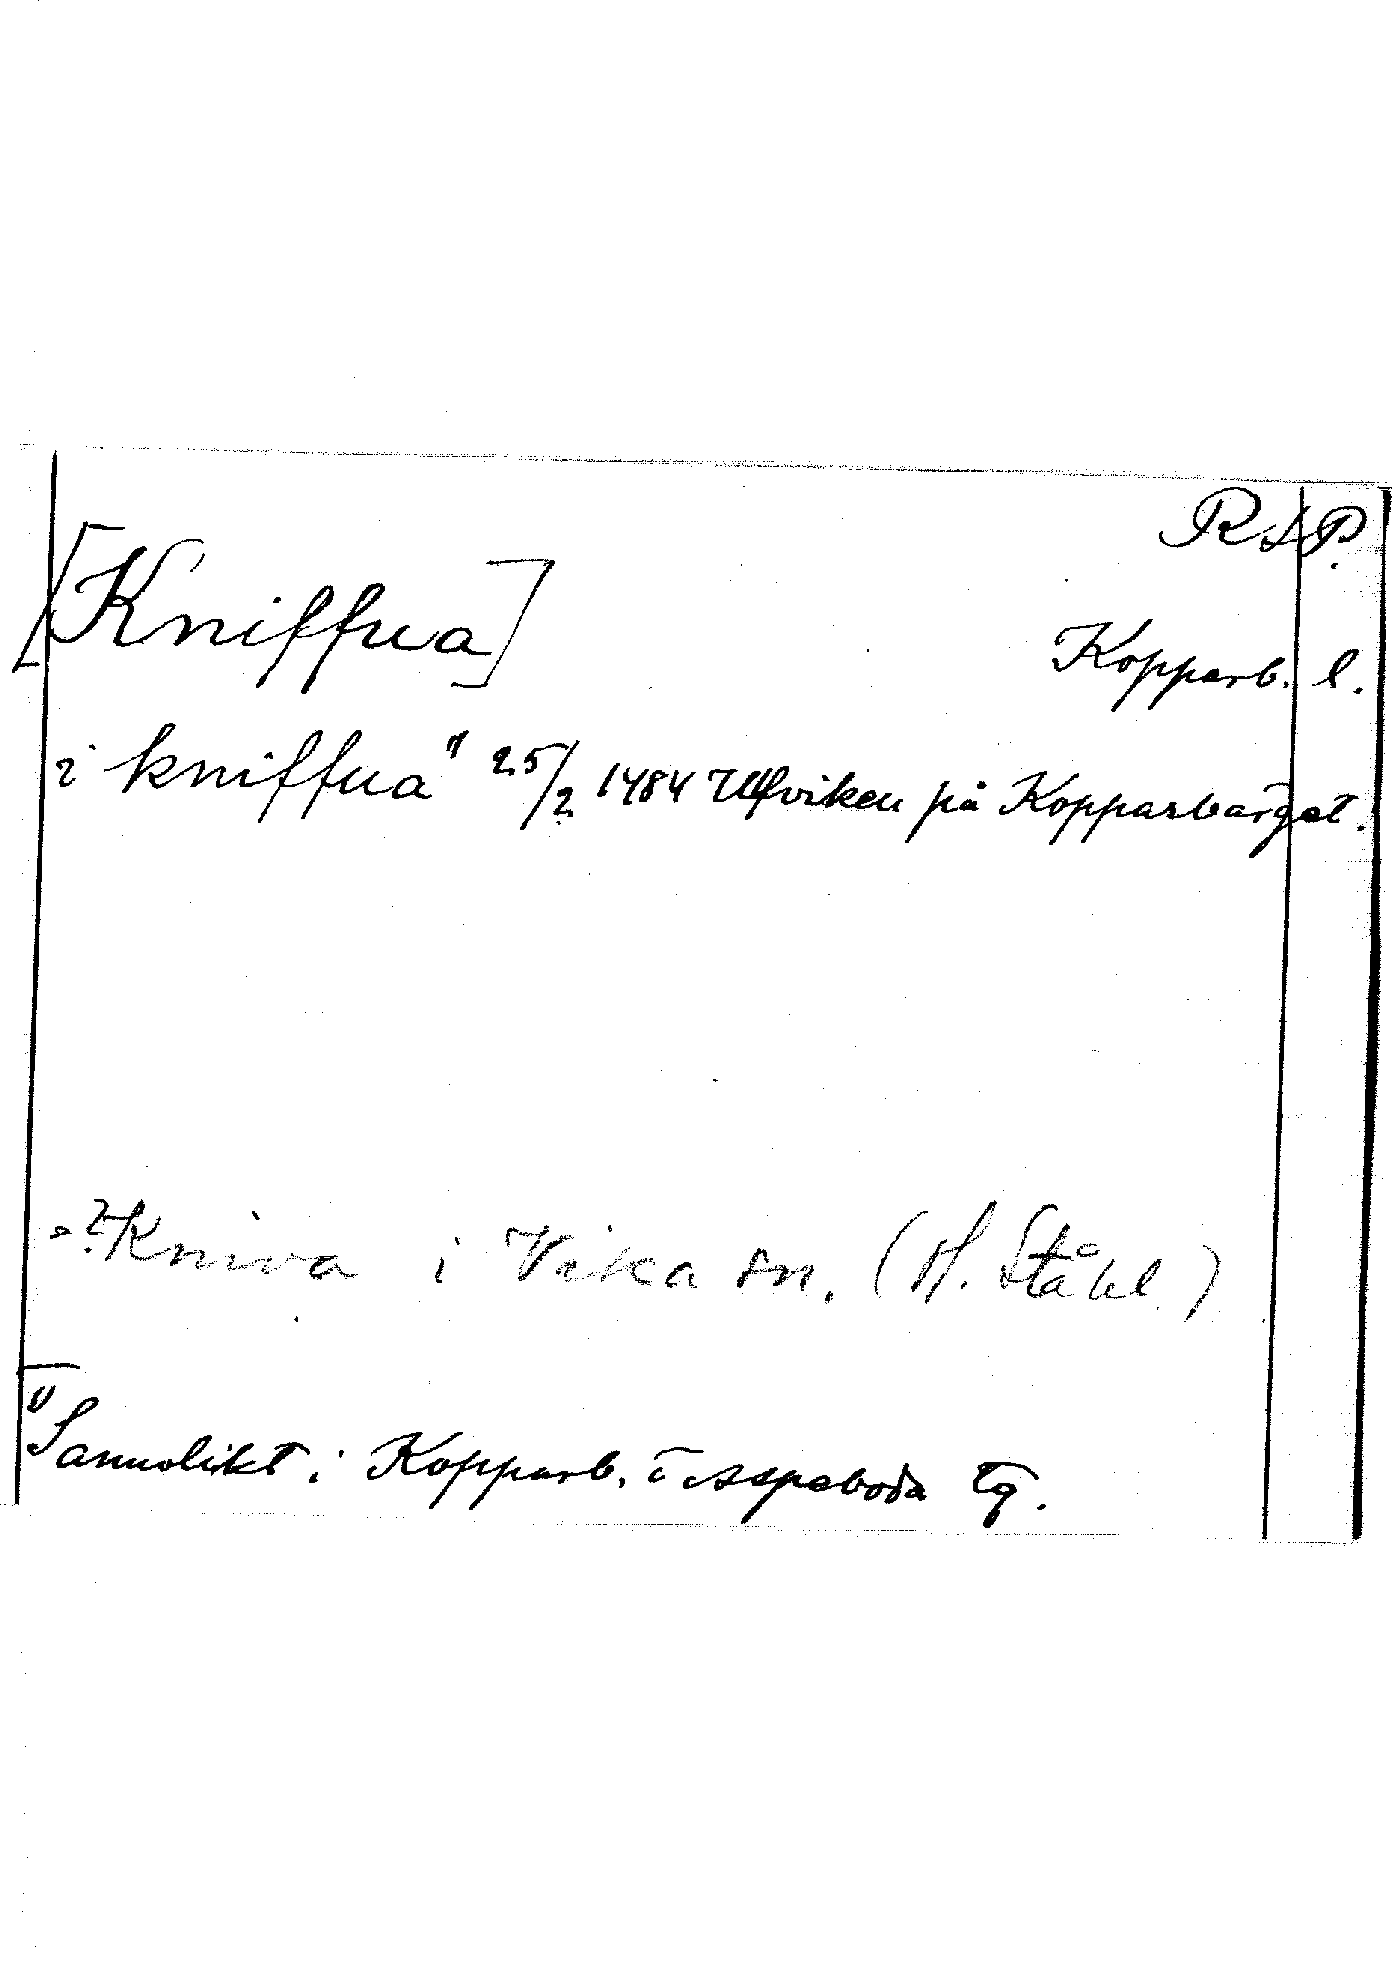 RAP.
[Kniffua]
Kopparb. l.
i kniffua 1) 25/2 1484 Ulfviken på Kopparbärget.
=? Kniva i Vika sn. (H. Ståhl)
1) Sannolikt i Kopparb. o Aspeboda tg.